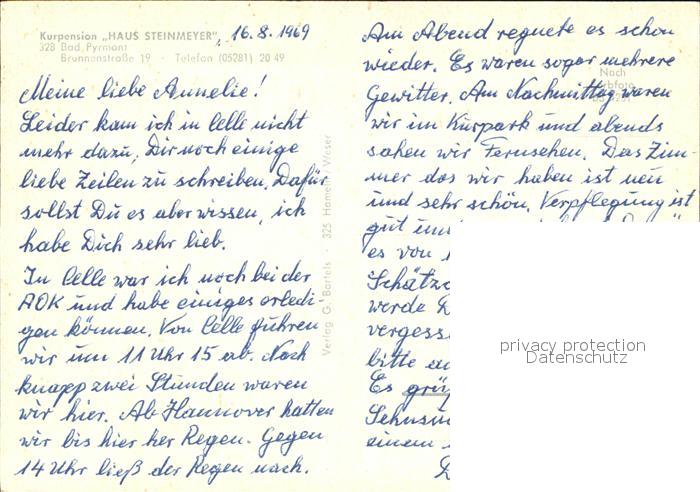 Kurpension „HAUS STEINMEYER", 16.8.1969
328 Bad Pyrmont
Brunnenstraße 19 · Telefon (05281) 20 49
Meine liebe Annelie!
Leider kam ich in Celle nicht
mehr dazu, Dir noch einige
liebe Zeilen zu schreiben. Dafür
sollst Du es aber wissen, ich
habe Dich sehr lieb.
In Celle war ich noch bei der
AOK und habe einiges erledi-
gen können. Von Celle fuhren
wir um 11 Uhr 15 ab. Nach
knapp zwei Stunden waren
wir hier. Ab Hannover hatten
wir bis hier her Regen. Gegen
14 Uhr ließ der Regen nach.
Verlag G. Bartels · 325 Hameln / Weser
Am Abend regnete es schon
wieder. Es waren sogar mehrere
Gewitter. Am Nachmittag waren
wir im Kurpark und abends
sahen wir Fernsehen. Das Zim-
mer das wir haben ist neu
und sehr schön. Verpflegung ist
gut und
es von
Schätz
werde
vergess
bitte
Es grüß
Sehnsu
einem
Nach
Farbfoto
privacy protection
Datenschutz